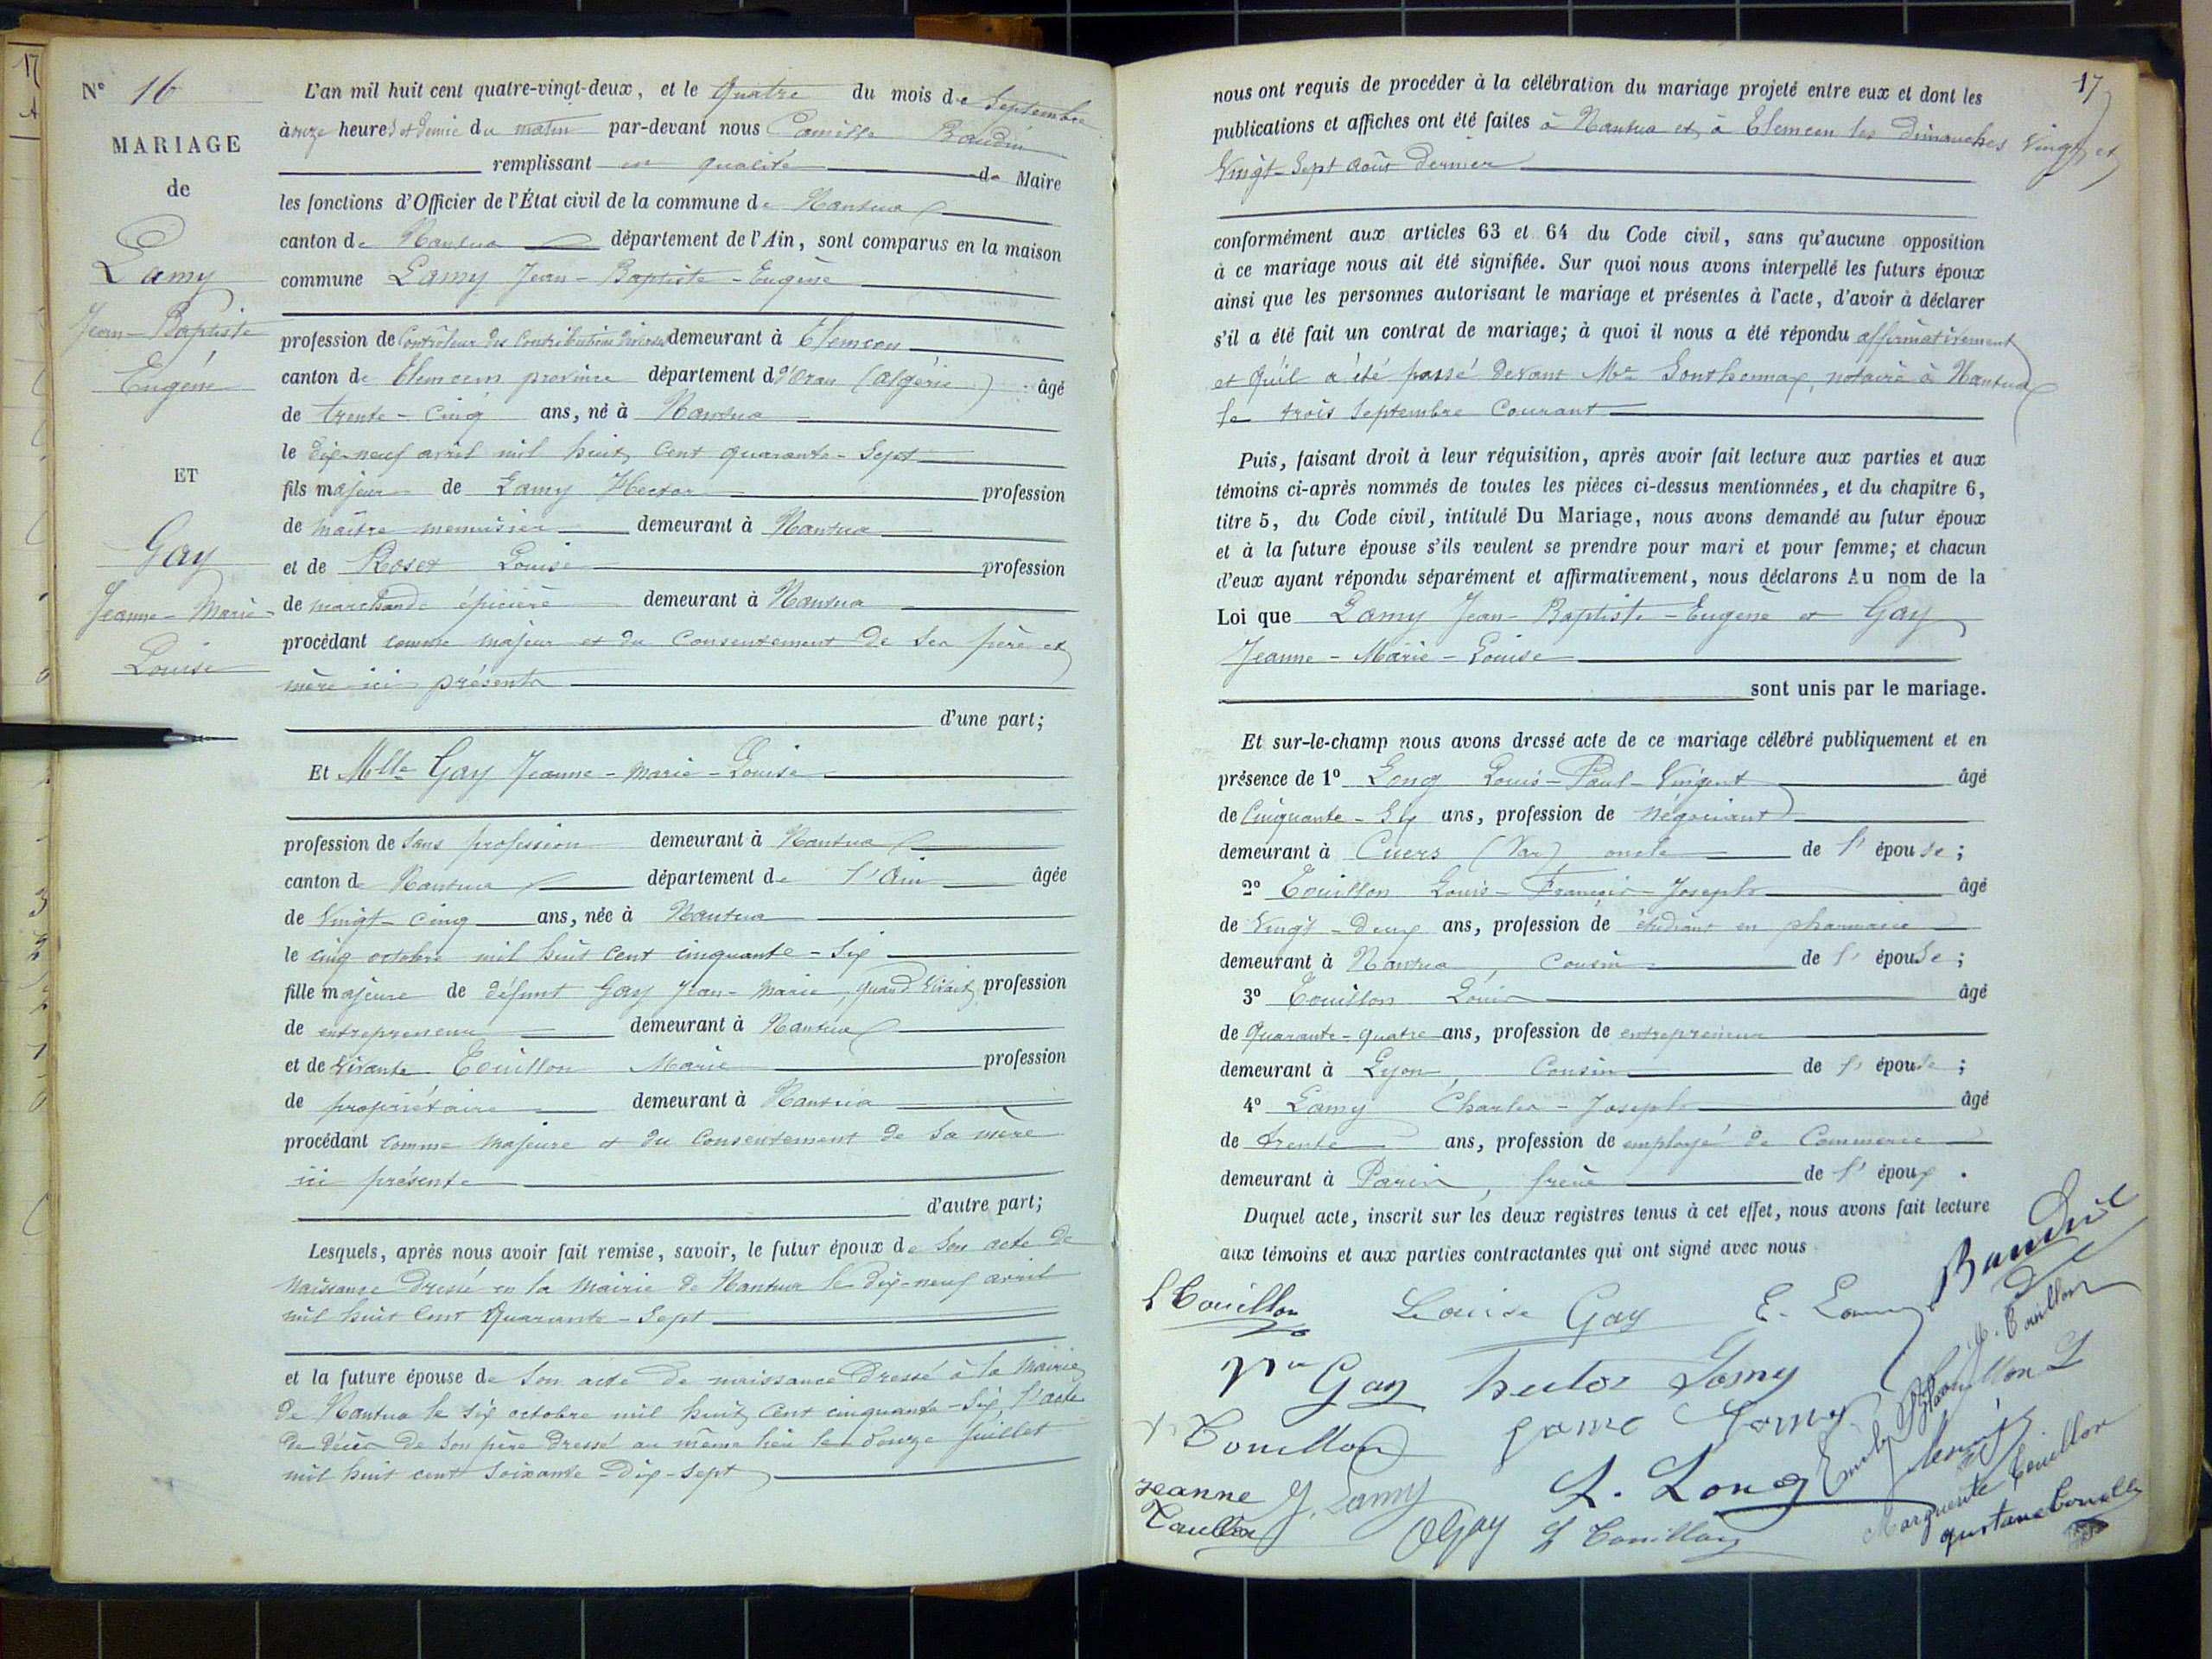 17
A
N° 16
MARIAGE
de
Lamy
Jean-Baptiste
Eugène
ET
Gay
Jeanne-Marie-
Louise
L'an mil huit cent quatre-vingt-deux, et le Quatre du mois de Septembre
à onze heures et demie du matin par-devant nous Camille Baudin
remplissant en qualité de Maire
les fonctions d'Officier de l'État civil de la commune de Nantua
canton de Nantua département de l'Ain, sont comparus en la maison
commune Lamy Jean-Baptiste-Eugène
profession de Contrôleur des Contributions diverses demeurant à Tlemcen
canton de Tlemcen province département d'Oran (Algérie) âgé
de trente-cinq ans, né à Nantua
le dix-neuf avril mil huit cent quarante-sept
fils majeur de Lamy Hector profession
de maître menuisier demeurant à Nantua
et de Roset Louise profession
de marchande épicière demeurant à Nantua
procédant comme majeur et du consentement de ses père et
mère ici présents
d'une part;
Et Mlle Gay Jeanne-Marie-Louise
profession de sans profession demeurant à Nantua
canton de Nantua département de l'Ain âgée
de vingt-cinq ans, née à Nantua
le cinq octobre mil huit cent cinquante-six
fille majeure de défunt Gay Jean-Marie, quand vivait, profession
de entrepreneur demeurant à Nantua
et de vivante Touillon Marie profession
de propriétaire demeurant à Nantua
procédant comme majeure et du consentement de sa mère
ici présente
d'autre part;
Lesquels, après nous avoir fait remise, savoir, le futur époux de son acte de
naissance dressé en la Mairie de Nantua le dix-neuf avril
mil huit cent quarante-sept
et la future épouse de son acte de naissance dressé à la Mairie
de Nantua le six octobre mil huit cent cinquante-six, l'acte
de décès de son père dressé au même lieu le douze juillet
mil huit cent soixante-dix-sept
17
nous ont requis de procéder à la célébration du mariage projeté entre eux et dont les
publications et affiches ont été faites à Nantua et à Tlemcen les dimanches vingt et
vingt-sept août dernier
conformément aux articles 63 et 64 du Code civil, sans qu'aucune opposition
à ce mariage nous ait été signifiée. Sur quoi nous avons interpellé les futurs époux
ainsi que les personnes autorisant le mariage et présentes à l'acte, d'avoir à déclarer
s'il a été fait un contrat de mariage; à quoi il nous a été répondu affirmativement
et qu'il a été passé devant Me Sonthonnax, notaire à Nantua
le trois septembre courant
Puis, faisant droit à leur réquisition, après avoir fait lecture aux parties et aux
témoins ci-après nommés de toutes les pièces ci-dessus mentionnées, et du chapitre 6,
titre 5, du Code civil, intitulé Du Mariage, nous avons demandé au futur époux
et à la future épouse s'ils veulent se prendre pour mari et pour femme; et chacun
d'eux ayant répondu séparément et affirmativement, nous déclarons Au nom de la
Loi que Lamy Jean-Baptiste-Eugène et Gay
Jeanne-Marie-Louise
sont unis par le mariage.
Et sur-le-champ nous avons dressé acte de ce mariage célébré publiquement et en
présence de 1° Long Louis-Paul-Vincent âgé
de cinquante-six ans, profession de négociant
demeurant à Cuers (Var) oncle de l'épouse;
2° Touillon Louis-François-Joseph âgé
de vingt-deux ans, profession de étudiant en pharmacie
demeurant à Nantua, cousin de l'épouse;
3° Touillon Louis âgé
de quarante-quatre ans, profession de entrepreneur
demeurant à Lyon, cousin de l'épouse;
4° Lamy Charles-Joseph âgé
de trente ans, profession de employé de Commerce
demeurant à Paris, frère de l'époux.
Duquel acte, inscrit sur les deux registres tenus à cet effet, nous avons fait lecture
aux témoins et aux parties contractantes qui ont signé avec nous
L Touillon Louise Gay E. Lamy Baudin
Ve Gay hector Lamy
Touillon Lamy
Jeanne Touillon J. Lamy L. Long
Gay L Touillon
Marguerite Touillon
gustave Touillon